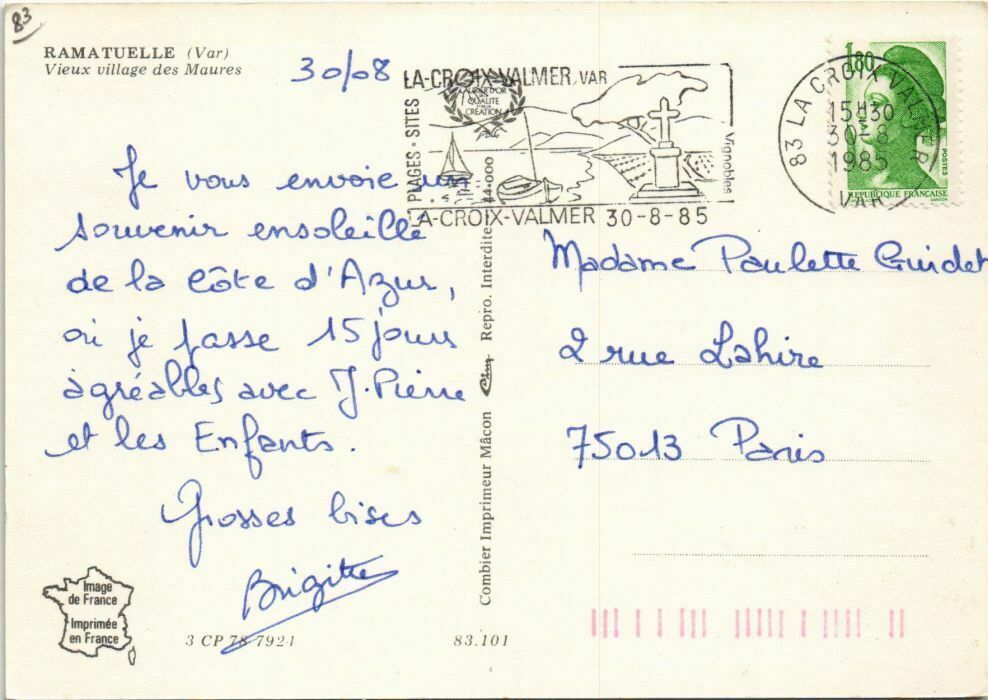 83
RAMATUELLE (Var)
Vieux village des Maures
30/08
Je vous envoie un
souvenir ensoleillé
de la Côte d'Azur,
où je passe 15 jours
agréables avec J.Pierre
et les Enfants.
Grosses bises
Brigitte
Image
de France
Imprimée
en France
3 CP 78 7921
83.101
Combier Imprimeur Mâcon Cim Repro. Interdite
LA-CROIX-VALMER, VAR
PLAGES · SITES
QUALITE
CREATION
Vignobles
LA-CROIX-VALMER 30-8-85
83 LA CROIX VALMER
15H30
30-8
1985
VAR
1,80
POSTES
REPUBLIQUE FRANÇAISE
GANDON
Madame Paulette Guidet
2 rue Lahire
75013 Paris